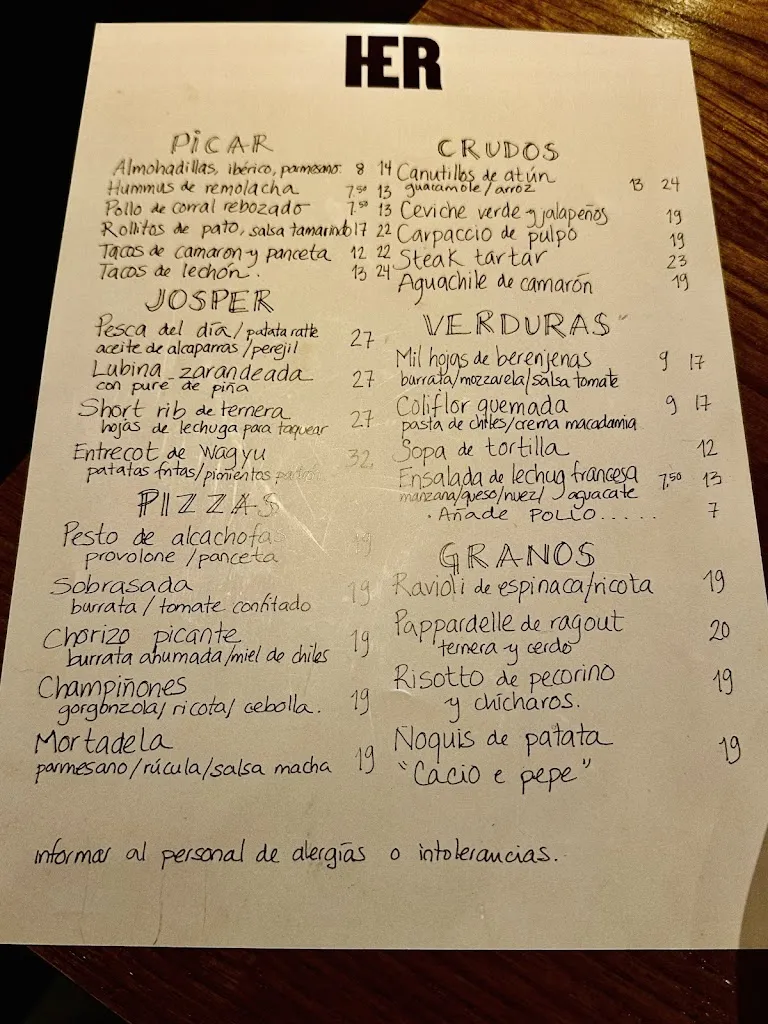 HER
PICAR
Almohadillas, ibérico, parmesano. 8 14
Hummus de remolacha 7.50 13
Pollo de corral rebozado 7.50 13
Rollitos de pato, salsa tamarindo 17 22
Tacos de camaron y panceta 12 22
Tacos de lechón. 13 24
JOSPER
Pesca del día/patata ratte 27
aceite de alcaparras/perejil
Lubina zarandeada 27
con puré de piña
Short rib de ternera 27
hojas de lechuga para taquear
Entrecot de wagyu 32
patatas fritas/pimientos
PIZZAS
Pesto de alcachofa 19
provolone/panceta
Sobrasada 19
burrata/tomate confitado
Chorizo picante 19
burrata ahumada/miel de chiles
Champiñones 19
gorgonzola/ricota/cebolla.
Mortadela 19
parmesano/rúcula/salsa macha
CRUDOS
Canutillos de atún 13 24
guacamole/arroz
Ceviche verde y jalapeños 19
Carpaccio de pulpo 19
Steak tartar 23
Aguachile de camarón 19
VERDURAS
Mil hojas de berenjenas 9 17
burrata/mozzarela/salsa tomate
Coliflor quemada 9 17
pasta de chiles/crema macadamia
Sopa de tortilla 12
Ensalada de lechug francesa 7,50 13
manzana/queso/nuez/ aguacate
· Añade POLLO..... 7
GRANOS
Ravioli de espinaca/ricota 19
Pappardelle de ragout 20
ternera y cerdo
Risotto de pecorino 19
y chícharos.
Ñoquis de patata 19
"Cacio e pepe"
informar al personal de alergías o intolerancias.